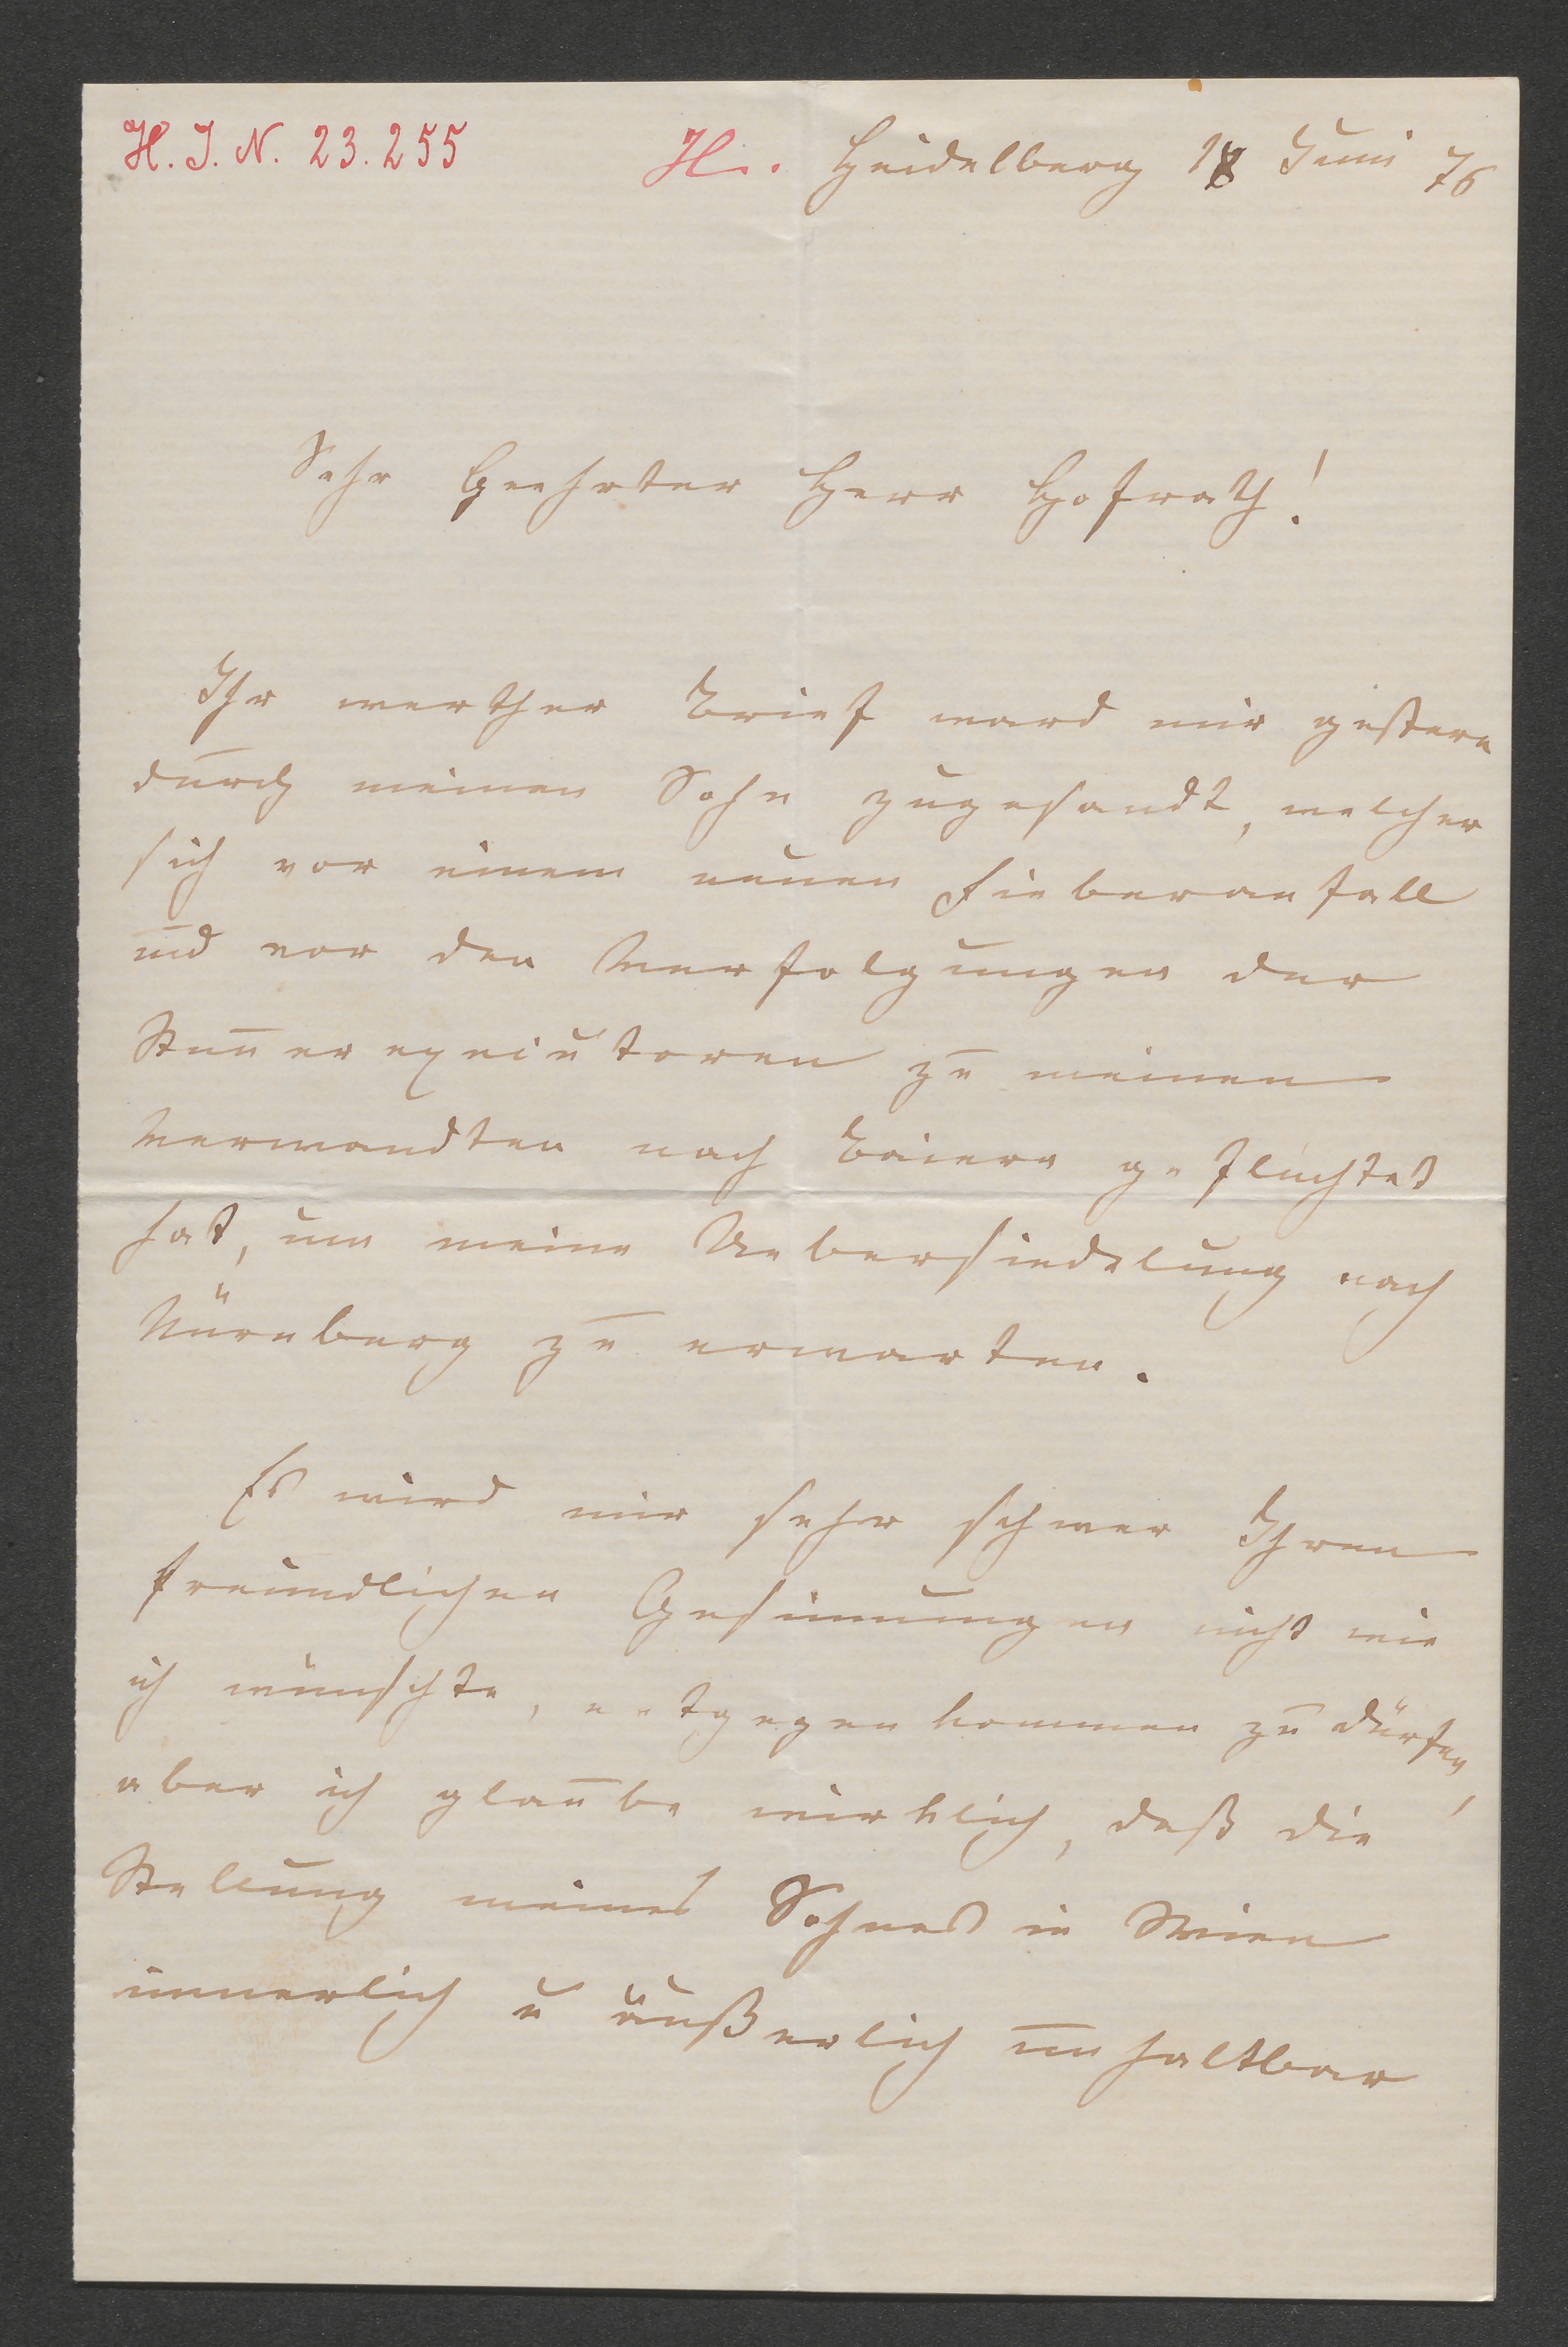 H. J. N. 23.255 H. Heidelberg 18 Juni 76
Sehr Geehrter Herr Hofrath!
Ihr werther Brief ward mir gestern
durch meinen Sohn zugesandt, welcher
sich vor einem neuen Fieberanfall
und vor den Verfolgungen der
Steuerexecutoren zu meinen
Verwandten nach Baiern geflüchtet
hat, um meine Uebersiedelung nach
Nürnberg zu erwarten.
Es wird mir sehr schwer Ihren
freundlichen Gesinnungen nicht wie
ich wünschte, entgegenkommen zu dürfen,
aber ich glaube wirklich, daß die
Stellung meines Sohnes in Wien
innerlich u äußerlich unhaltbar